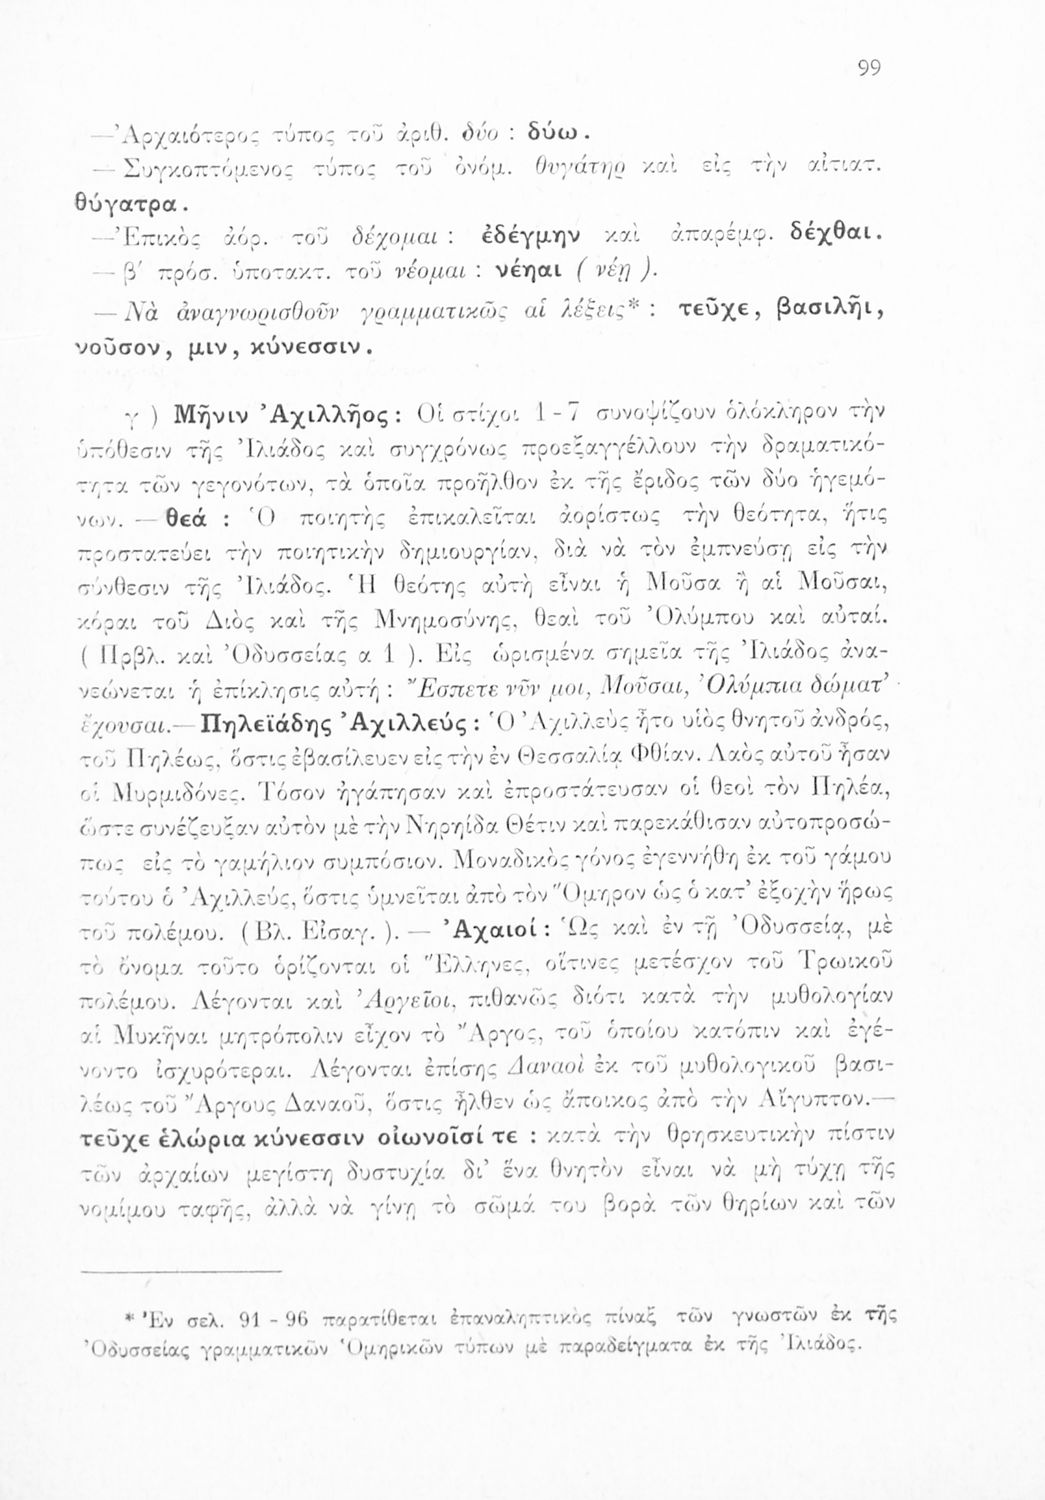 99
—Ἀρχαιότερος τύπος τοῦ ἀριθ. δύο : δύω.
— Συγκοπτόμενος τύπος τοῦ ὀνόμ. θυγάτηρ καὶ εἰς τὴν αἰτιατ.
θύγατρα.
—Ἐπικὸς ἀόρ. τοῦ δέχομαι : ἐδέγμην καὶ ἀπαρέμφ. δέχθαι.
— β' πρόσ. ὑποτακτ. τοῦ νέομαι : νέηαι ( νέῃ ).
— Νὰ ἀναγνωρισθοῦν γραμματικῶς αἱ λέξεις* : τεῦχε, βασιλῆι,
νοῦσον, μιν, κύνεσσιν.
γ ) Μῆνιν Ἀχιλλῆος : Οἱ στίχοι 1 - 7 συνοψίζουν ὁλόκληρον τὴν
ὑπόθεσιν τῆς Ἰλιάδος καὶ συγχρόνως προεξαγγέλλουν τὴν δραματικό-
τητα τῶν γεγονότων, τὰ ὁποῖα προῆλθον ἐκ τῆς ἔριδος τῶν δύο ἡγεμό-
νων. — θεά : Ὁ ποιητὴς ἐπικαλεῖται ἀορίστως τὴν θεότητα, ἥτις
προστατεύει τὴν ποιητικὴν δημιουργίαν, διὰ νὰ τὸν ἐμπνεύσῃ εἰς τὴν
σύνθεσιν τῆς Ἰλιάδος. Ἡ θεότης αὐτὴ εἶναι ἡ Μοῦσα ἢ αἱ Μοῦσαι,
κόραι τοῦ Διὸς καὶ τῆς Μνημοσύνης, θεαὶ τοῦ Ὀλύμπου καὶ αὐταί.
( Πρβλ. καὶ Ὀδυσσείας α 1 ). Εἰς ὡρισμένα σημεῖα τῆς Ἰλιάδος ἀνα-
νεώνεται ἡ ἐπίκλησις αὐτή : Ἔσπετε νῦν μοι, Μοῦσαι, Ὀλύμπια δώματ'
ἔχουσαι.— Πηλεϊάδης Ἀχιλλεύς : Ὁ Ἀχιλλεὺς ἦτο υἱὸς θνητοῦ ἀνδρός,
τοῦ Πηλέως, ὅστις ἐβασίλευεν εἰς τὴν ἐν Θεσσαλίᾳ Φθίαν. Λαὸς αὐτοῦ ἦσαν
οἱ Μυρμιδόνες. Τόσον ἠγάπησαν καὶ ἐπροστάτευσαν οἱ θεοὶ τὸν Πηλέα,
ὥστε συνέζευξαν αὐτὸν μὲ τὴν Νηρηίδα Θέτιν καὶ παρεκάθισαν αὐτοπροσώ-
πως εἰς τὸ γαμήλιον συμπόσιον. Μοναδικὸς γόνος ἐγεννήθη ἐκ τοῦ γάμου
τούτου ὁ Ἀχιλλεύς, ὅστις ὑμνεῖται ἀπὸ τὸν Ὅμηρον ὡς ὁ κατ' ἐξοχὴν ἥρως
τοῦ πολέμου. ( Βλ. Εἰσαγ. ). — Ἀχαιοί : Ὡς καὶ ἐν τῇ Ὀδυσσείᾳ, μὲ
τὸ ὄνομα τοῦτο ὁρίζονται οἱ Ἕλληνες, οἵτινες μετέσχον τοῦ Τρωικοῦ
πολέμου. Λέγονται καὶ Ἀργεῖοι, πιθανῶς διότι κατὰ τὴν μυθολογίαν
αἱ Μυκῆναι μητρόπολιν εἶχον τὸ Ἄργος, τοῦ ὁποίου κατόπιν καὶ ἐγέ-
νοντο ἰσχυρότεραι. Λέγονται ἐπίσης Δαναοὶ ἐκ τοῦ μυθολογικοῦ βασι-
λέως τοῦ Ἄργους Δαναοῦ, ὅστις ἦλθεν ὡς ἄποικος ἀπὸ τὴν Αἴγυπτον.—
τεῦχε ἑλώρια κύνεσσιν οἰωνοῖσί τε : κατὰ τὴν θρησκευτικὴν πίστιν
τῶν ἀρχαίων μεγίστη δυστυχία δι' ἕνα θνητὸν εἶναι νὰ μὴ τύχῃ τῆς
νομίμου ταφῆς, ἀλλὰ νὰ γίνῃ τὸ σῶμά του βορὰ τῶν θηρίων καὶ τῶν
* Ἐν σελ. 91 - 96 παρατίθεται ἐπαναληπτικὸς πίναξ τῶν γνωστῶν ἐκ τῆς
Ὀδυσσείας γραμματικῶν Ὁμηρικῶν τύπων μὲ παραδείγματα ἐκ τῆς Ἰλιάδος.